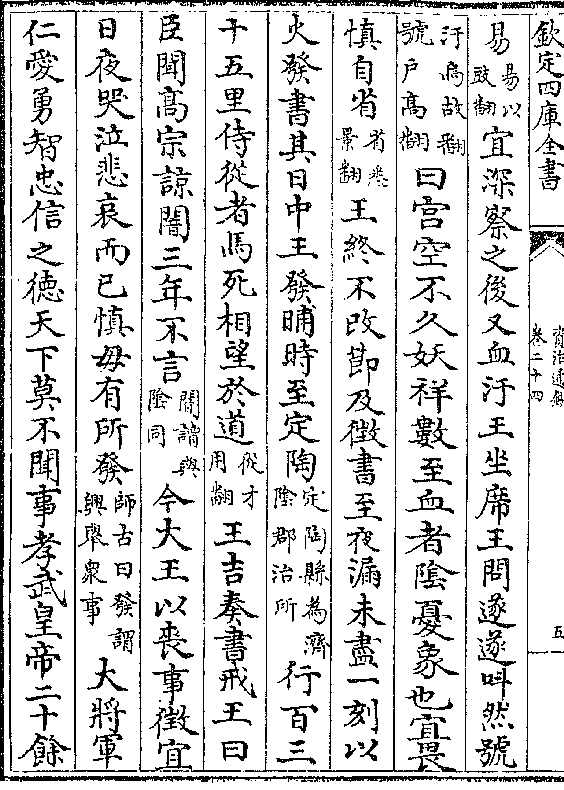 欽定四庫全書
資治通鑑
卷二十四
五
易易以豉翻宜深察之後又血汙王坐席王問遂遂叫然號
汙烏故翻號戸高翻曰宫空不久妖祥數至血者隂憂象也宜畏
慎自省省悉景翻王終不改節及徵書至夜漏未盡一刻以
火發書其日中王發晡時至定陶定陶縣為濟隂郡治所行百三
十五里侍從者馬死相望於道從才用翻王吉奏書戒王曰
臣聞高宗諒闇三年不言闇讀與隂同今大王以喪事徵宜
日夜哭泣悲哀而已慎毋有所發師古曰發謂興舉衆事大將軍
仁愛勇智忠信之徳天下莫不聞事孝武皇帝二十餘